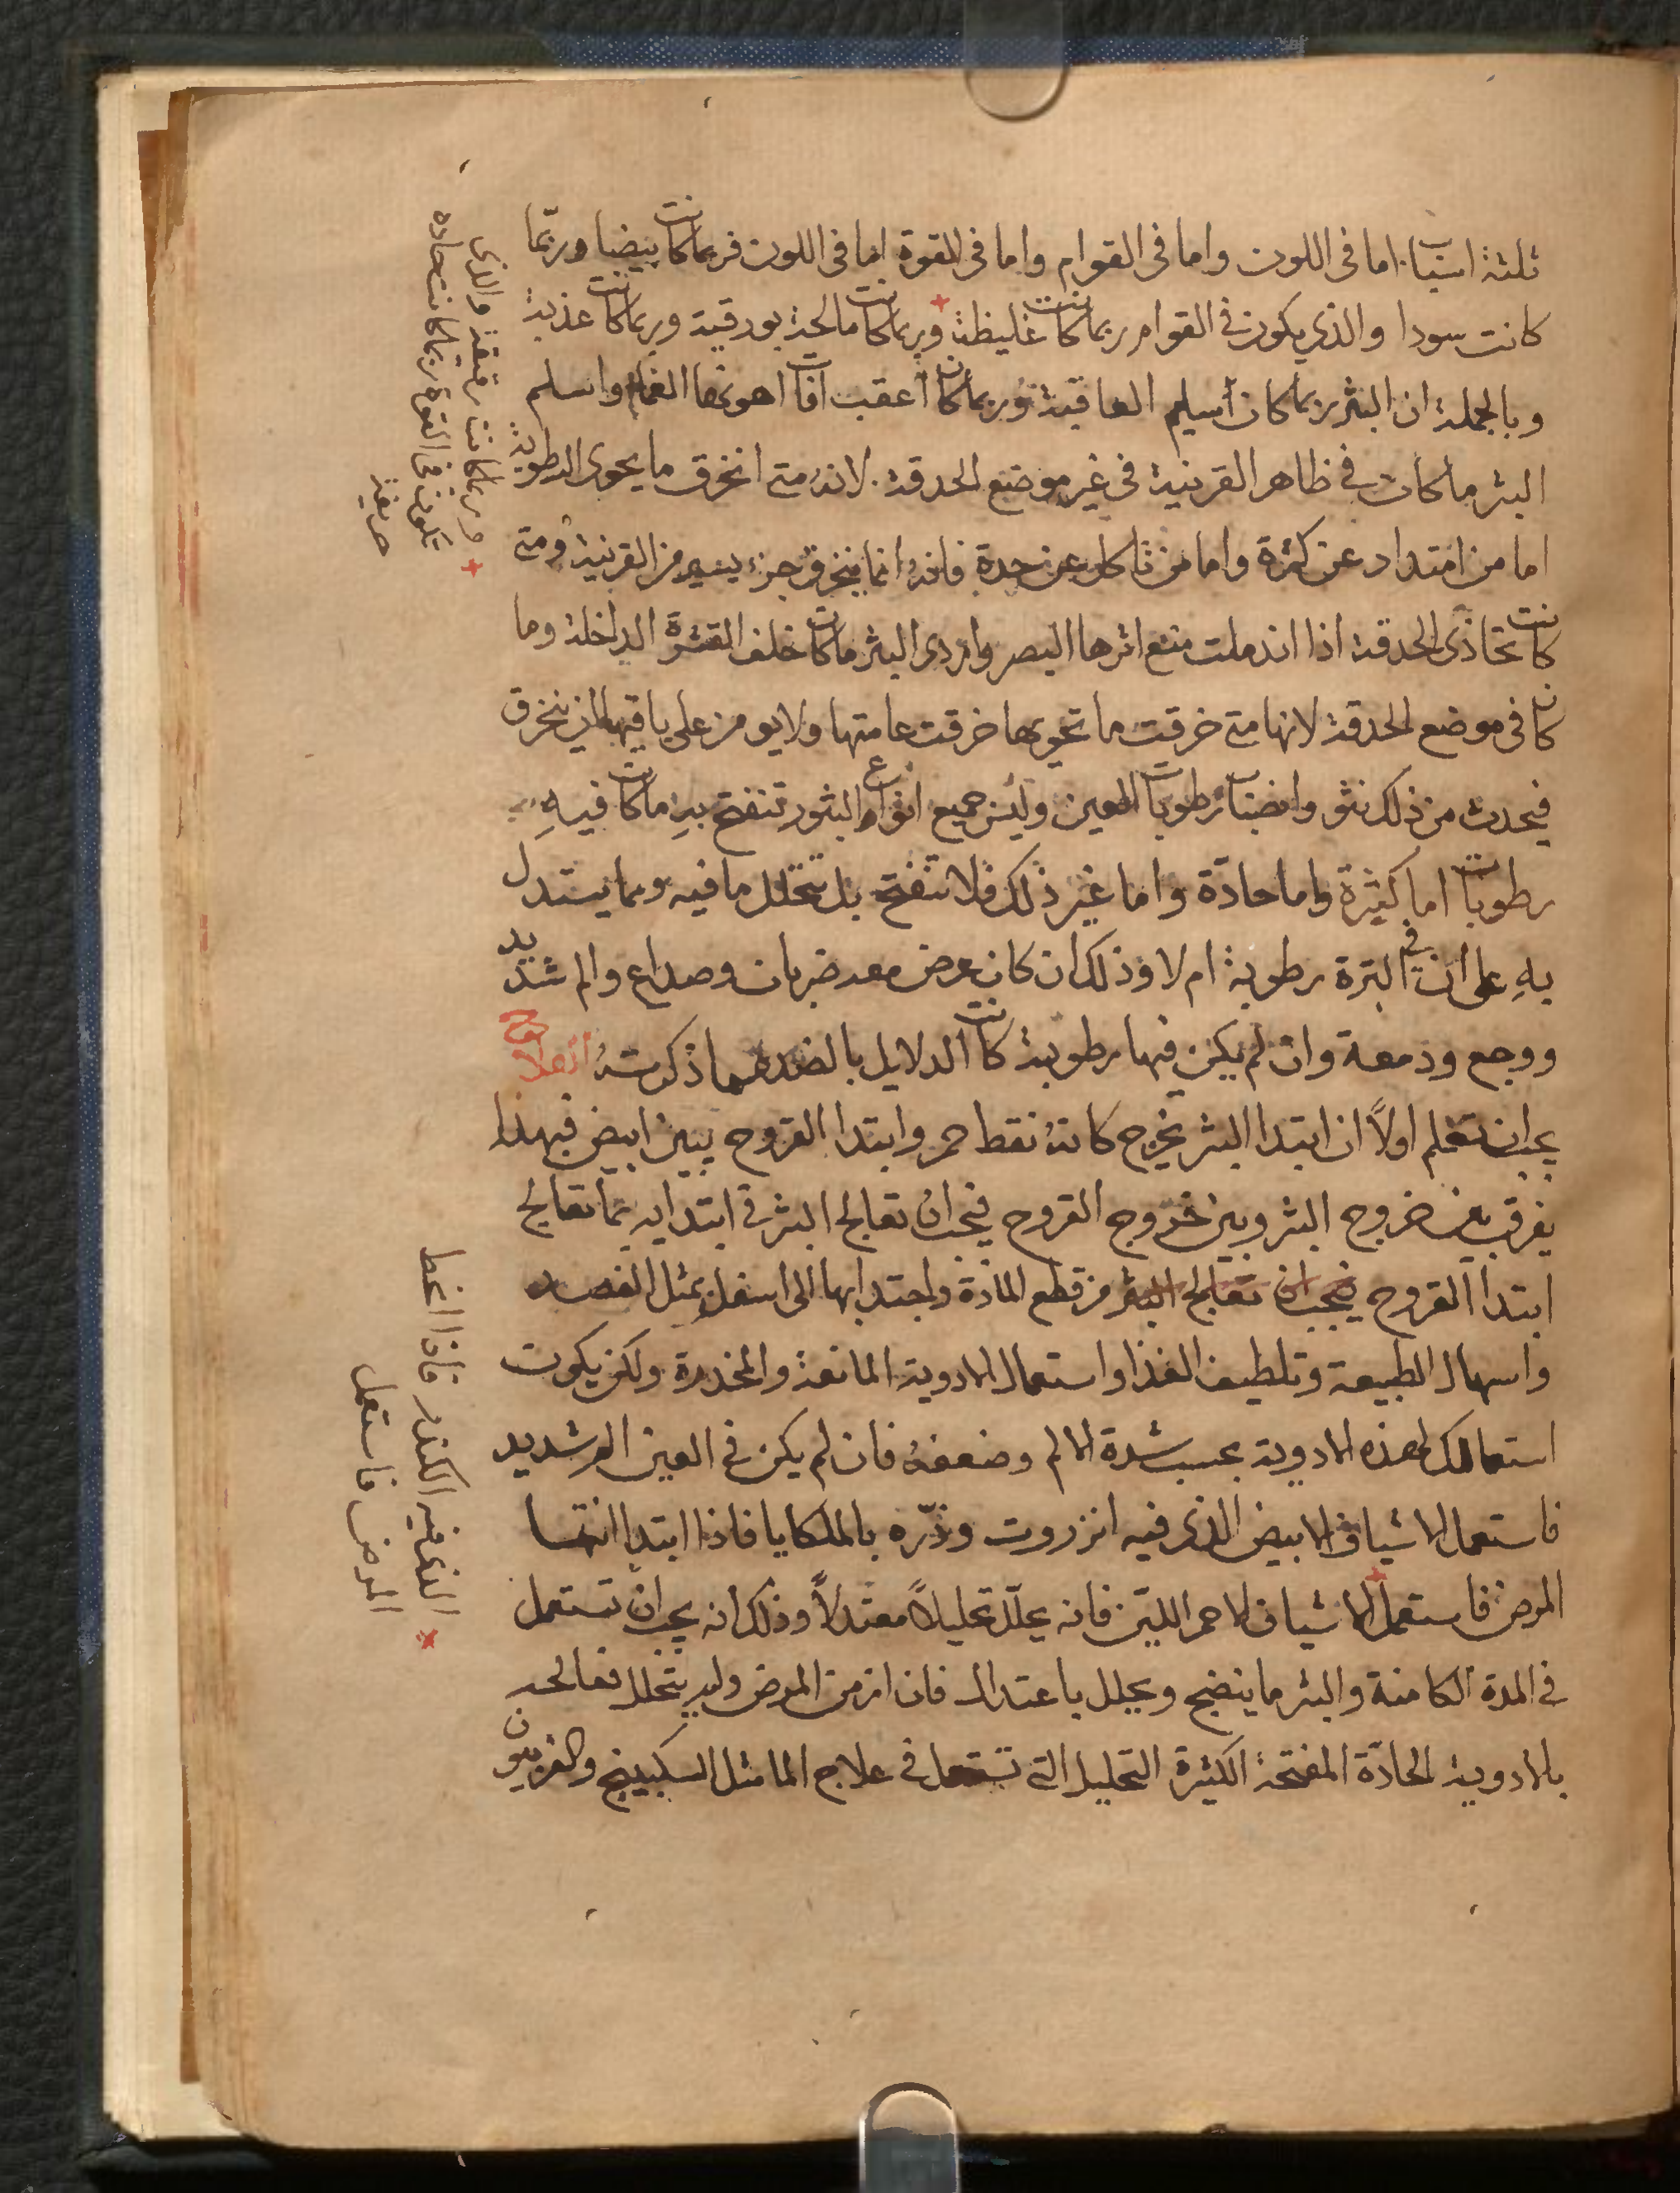 ثلثة اسباب اما فى اللون واما فى القوام واما فى القوة اما فى اللون فربما كانت بيضا وربما
كانت سودا والذي يكون في القوام ربما كانت غليظة وربما كانت مالحة بورقية وربما كانت عذبة
وبالجملة ان البثر ربما كان أسلم العاقبة وربما كان أعقب آفات اهونها الغمام واسلم
البثر ما كان في ظاهر القرنية فى غير موضع الحدقة لانه متى انخرق ما يحوى الرطوبة
اما من امتداد عن كثرة واما من تاكل عن حدة فانه انما ينخرق جزء يسير من القرنية ومتى
كانت تحاذى الحدقة اذا اندملت منع اثرها البصر واردى البثر ما كان خلف القشرة الداخلة وما
كان فى موضع الحدقة لانها متى خرقت ما تحويها خرقت عامتها ولا يومن على باقيها ان ينخرق
فيحدث من ذلك نتو وانصباب رطوبات العين وليس جميع انواع البثور تنفتح بل ما كانت فيه
رطوبات اما كثيرة واما حادّة واما غير ذلك فلا تنفتح بل يتحلل ما فيه ومما يستدل
به على ان في البثرة رطوبة ام لا وذلك ان كان عرض معه ضربان وصداع والم شديد
ووجع ودمعة وان لم يكن فيها رطوبة كانت الدلايل بالضد مما ذكرته العلاج
يجب ان تعلم اولاً ان ابتدا البثر يخرج كانه نقط حمر وابتدا القروح يبين ابيض فبهذا
يفرق بين خروج البثر وبين خروج القروح فيجب ان تعالج البثر في ابتدايه بما تعالج
ابتدا القروح فيجب ان تعالج البثر من قطع المادة واجتدابها الى اسفل بمثل الفصد
واسهال الطبيعة وتلطيف الغذا واستعمال الادوية المانعة والمخدرة ولكن يكون
استعمالك لهذه الادوية بحسب شدة الالم وضعفه فان لم يكن في العين الم شديد
فاستعمل الاشياف الابيض الذى فيه انزروت وذرّه بالملكايا فاذا ابتدا انتها
المرض فاستعمل الاشياف الاحمر الليّن فانه يحلّل تحليلاً معتدلاً وذلك انه يجب ان تستعمل
في المدة الكامنة والبثر ما ينضج ويحلل باعتدال فان ازمن المرض ولم يتحلل فعالجه
بالادوية الحادّة المفتحة الكثيرة التحليل التي تستعمل فى علاج الما مثل السكبينج والفربيون
+ وربما كانت رقيقة والذى
تكون فى القوة ربما كانت حادة
حريفية
× الذى فيه الكندر فاذا انحط
المرض فاستعمل